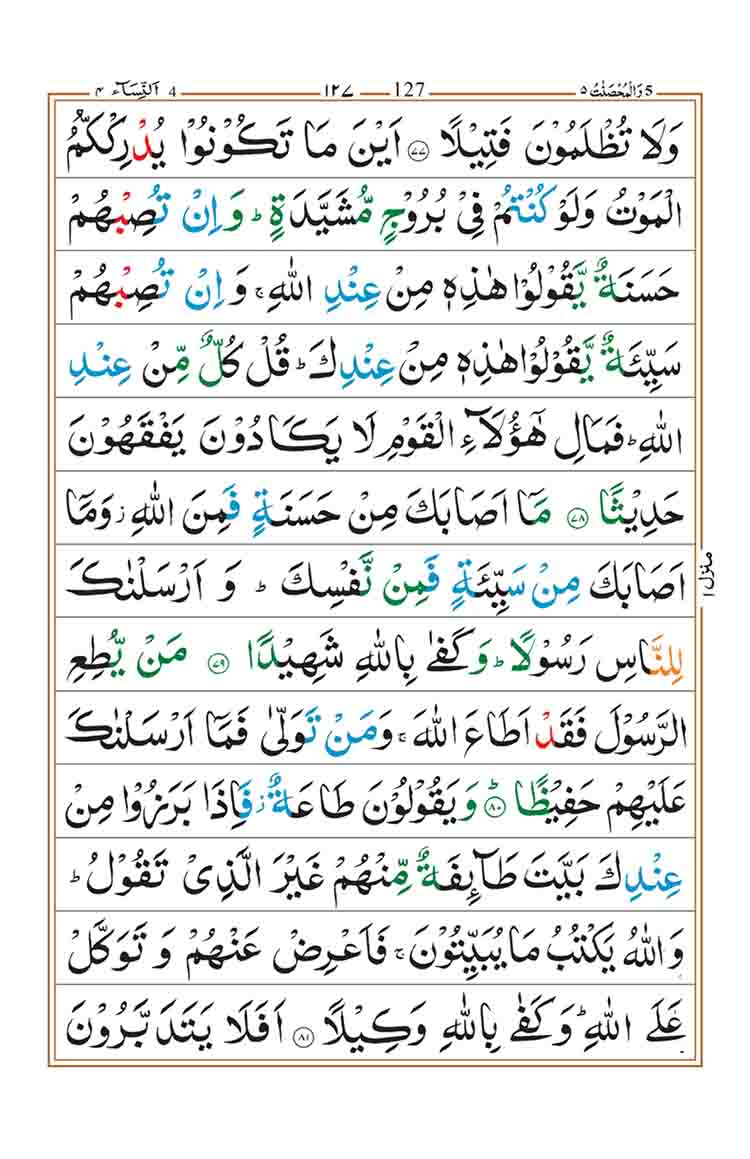 5 وَالْمُحْصَنٰتُ ٥ 127 ١٢٧ 4 اَلنِّسَآء ٤
وَلَا تُظْلَمُوْنَ فَتِيْلًا ﴿٧٧﴾ اَيْنَ مَا تَكُوْنُوْا يُدْرِكْكُّمُ
الْمَوْتُ وَلَوْ كُنْتُمْ فِيْ بُرُوْجٍ مُّشَيَّدَةٍ ؕ وَاِنْ تُصِبْهُمْ
حَسَنَةٌ يَّقُوْلُوْا هٰذِهٖ مِنْ عِنْدِ اللّٰهِ ۚ وَاِنْ تُصِبْهُمْ
سَيِّئَةٌ يَّقُوْلُوْا هٰذِهٖ مِنْ عِنْدِكَ ؕ قُلْ كُلٌّ مِّنْ عِنْدِ
اللّٰهِ ؕ فَمَالِ هٰٓؤُلَآءِ الْقَوْمِ لَا يَكَادُوْنَ يَفْقَهُوْنَ
حَدِيْثًا ﴿٧٨﴾ مَاۤ اَصَابَكَ مِنْ حَسَنَةٍ فَمِنَ اللّٰهِ ؗ وَمَاۤ
اَصَابَكَ مِنْ سَيِّئَةٍ فَمِنْ نَّفْسِكَ ؕ وَ اَرْسَلْنٰكَ
لِلنَّاسِ رَسُوْلًا ؕ وَكَفٰى بِاللّٰهِ شَهِيْدًا ﴿٧٩﴾ مَنْ يُّطِعِ
الرَّسُوْلَ فَقَدْ اَطَاعَ اللّٰهَ ۚ وَمَنْ تَوَلّٰى فَمَاۤ اَرْسَلْنٰكَ
عَلَيْهِمْ حَفِيْظًا ﴿٨٠﴾ؕ وَيَقُوْلُوْنَ طَاعَةٌ ؗ فَاِذَا بَرَزُوْا مِنْ
عِنْدِكَ بَيَّتَ طَآئِفَةٌ مِّنْهُمْ غَيْرَ الَّذِىْ تَقُوْلُ ؕ
وَاللّٰهُ يَكْتُبُ مَا يُبَيِّتُوْنَ ۚ فَاَعْرِضْ عَنْهُمْ وَ تَوَكَّلْ
عَلَى اللّٰهِ ؕ وَكَفٰى بِاللّٰهِ وَكِيْلًا ﴿٨١﴾ اَفَلَا يَتَدَبَّرُوْنَ
منزل ١